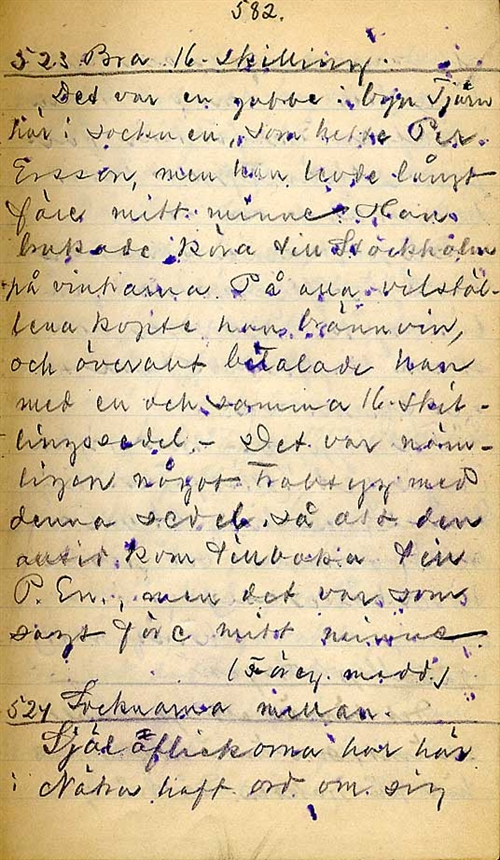 582.
523 Bra 16-skilling.
Det var en gubbe i byn Tjärn
här i socknen, som hette Per
Ersson, men han levde långt
före mitt minne. Han
brukade köra till Stockholm
på vintrarna. På alla vilstäl-
lena köpte han brännvin,
och överallt betalade han
med en och samma 16-skil-
lingssedel. - Det var näm-
ligen något trolltyg med
denna sedel, så att den
alltid kom tillbaka till
P. En., men det var som
sagt före mitt minne
(Föreg. medd.)
524 Socknarna mellan.
Själaflickorna har här
i Nätra haft ord om sig